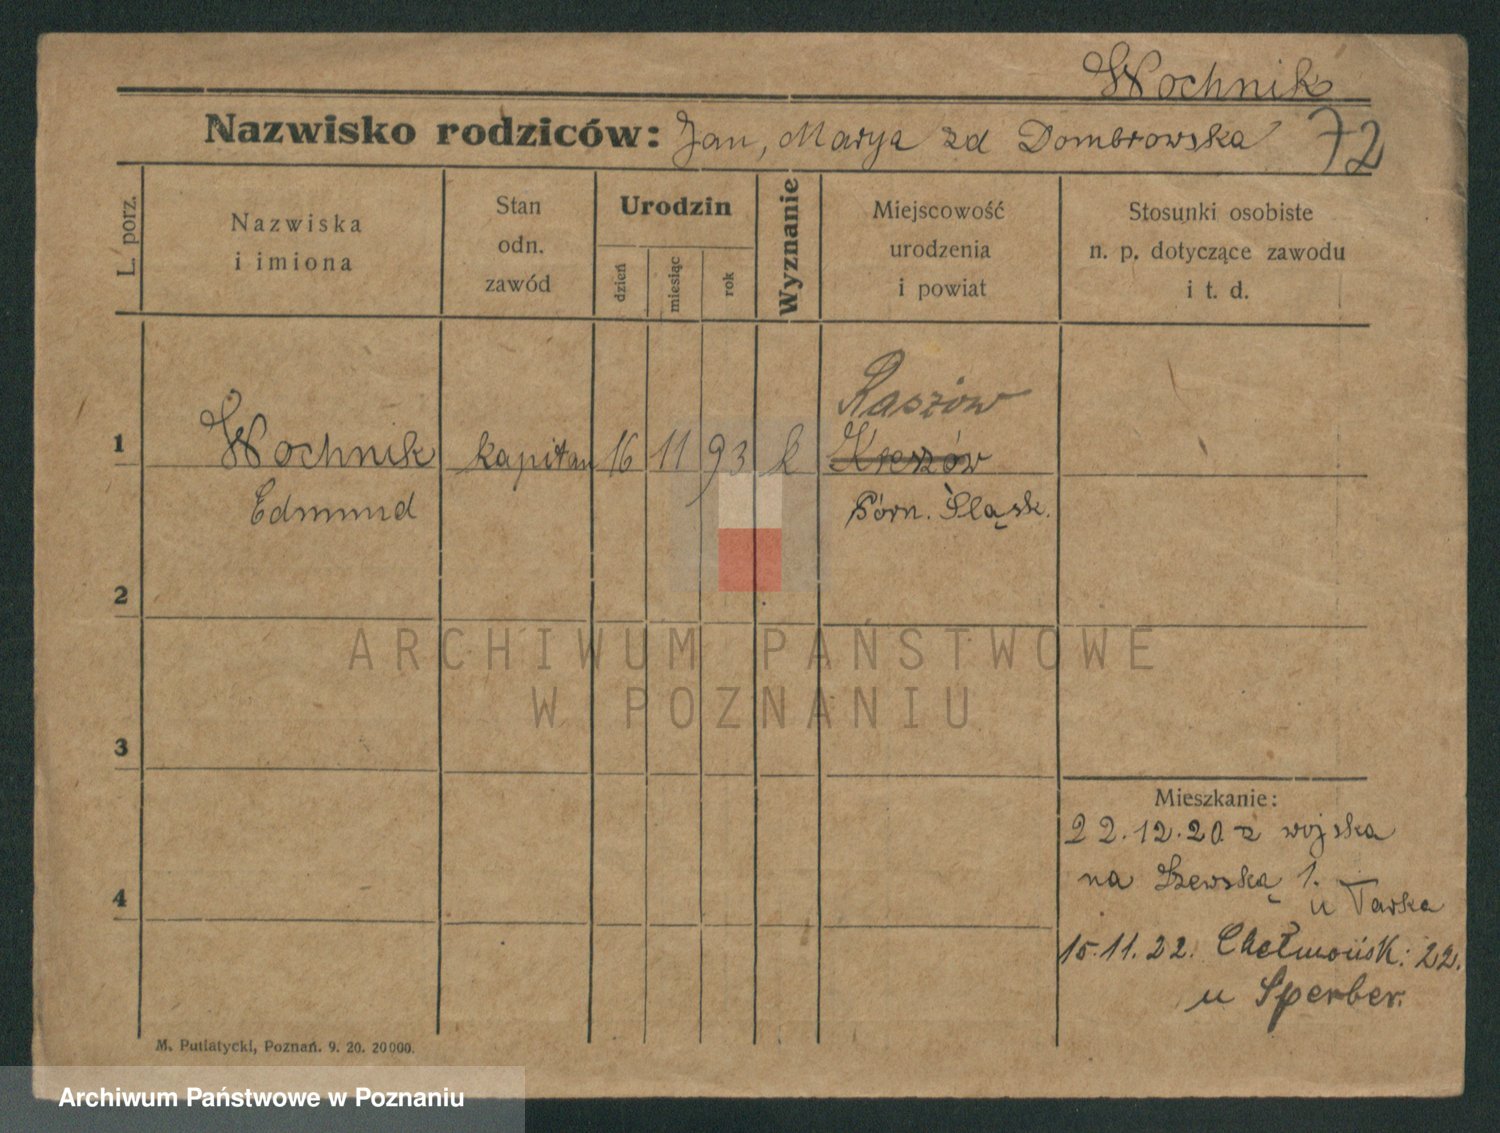 Wochnik
Nazwisko rodziców: Jan, Marya zd Dombrowska 72
L. porz.
Nazwiska
i imiona
Stan
odn.
zawód
Urodzin
dzień
miesiąc
rok
Wyznanie
Miejscowość
urodzenia
i powiat
Stosunki osobiste
n. p. dotyczące zawodu
i t. d.
Raszów
1 Wochnik kapitan 16 11 93 k
Edmund Górn. Śląsk.
2
ARCHIWUM PAŃSTWOWE
W POZNANIU
3
Mieszkanie:
22.12.20 z wojska
na Szewską 1.
u Tarka
4
15.11.22. Chełmońsk: 22.
u Sperber.
M. Putiatycki, Poznań. 9. 20. 20000.
Archiwum Państwowe w Poznaniu